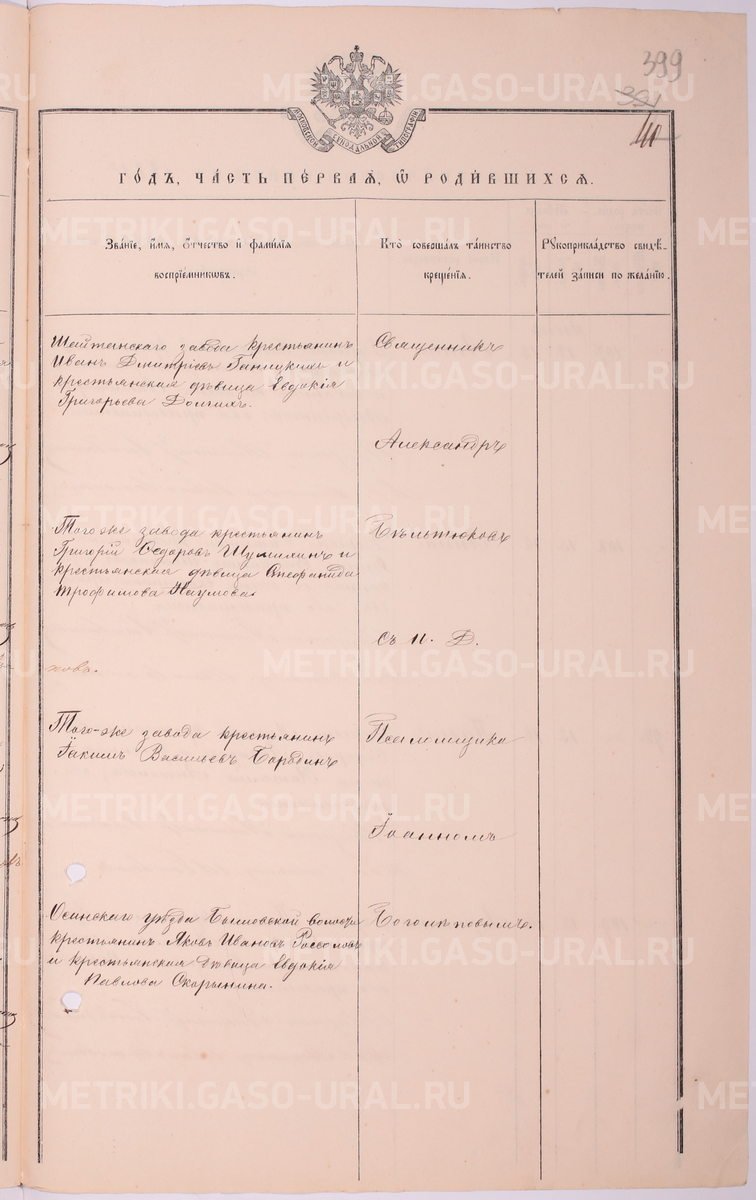 399
391
МОСКОВСКОЙ СѴНОДАЛЬНОЙ ТИПОГРАФІИ
ГО́ДЪ, ЧА́СТЬ ПЕ́РВАѦ, Ѡ҆ РОДИ́ВШИХСѦ.
Зва́нїе, и҆́мѧ, Ѻ҆́тчество и҆ фами́лїѧ
воспрїе́мникѡвъ.
Кто̀ соверша́лъ та́инство
креще́нїѧ.
Рꙋкоприкла́дство свидѣ́-
телей за́писи по жела́нїю.
Шайтанскаго завода крестьянинъ
Иванъ Дмитріевъ и
крестьянская дѣвица Евдокія
Григорьева Долгихъ.
Священникъ
Александръ
Того-же завода крестьянинъ
Григорій Ѳедоровъ Шумилинъ и
крестьянская дѣвица Степанида
Трофимова Наумова
Бѣльтюковъ
съ И. Д.
ковъ.
Того-же завода крестьянинъ
Іакимъ Васильевъ
Псаломщика
Іоанномъ
Осинскаго уѣзда волости
крестьянинъ Яковъ Ивановъ
и крестьянская дѣвица Евдокія
Павлова Скорынина.
Боголѣповымъ.
METRIKI.GASO-URAL.RU